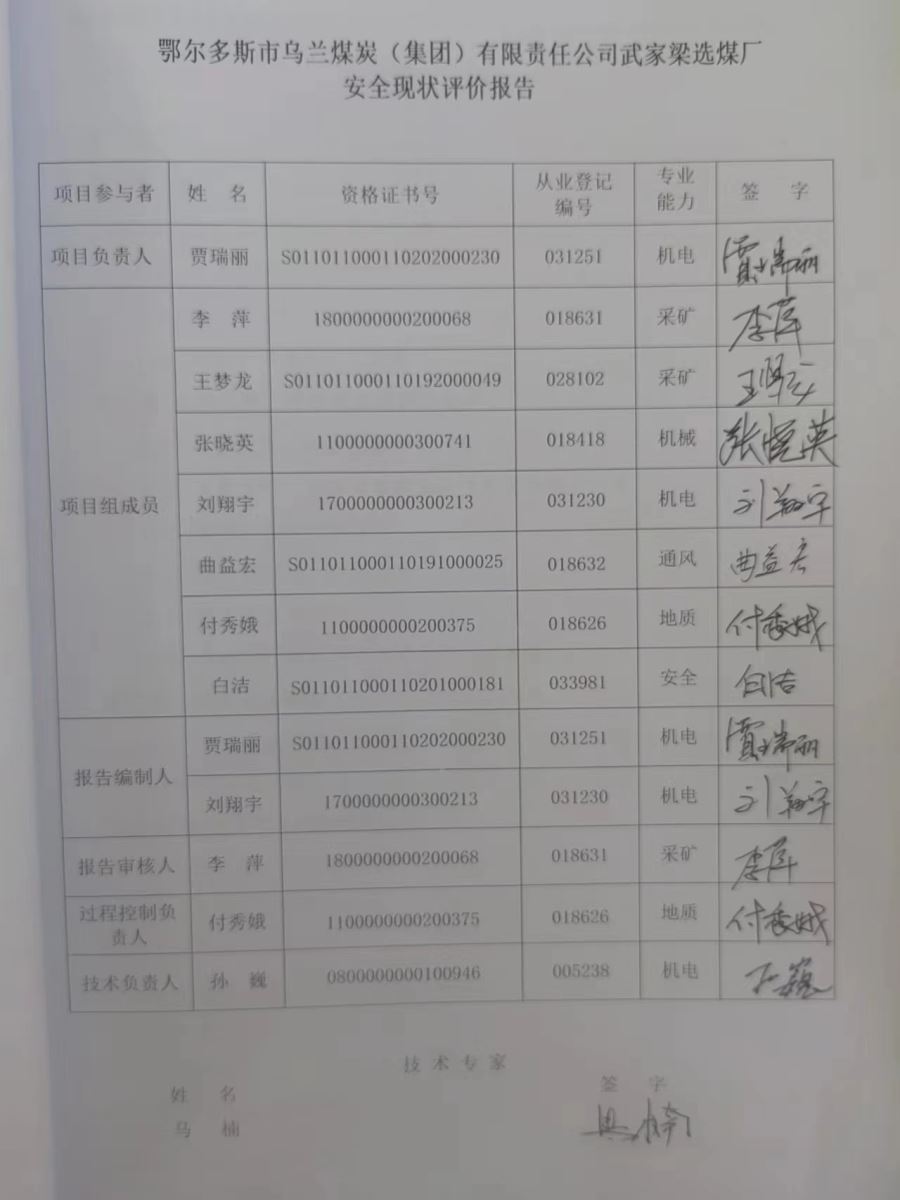 鄂尔多斯市乌兰煤炭（集团）有限责任公司武家梁选煤厂
安全现状评价报告
项目参与者 姓 名 资格证书号 从业登记编号 专业能力 签 字
项目负责人 贾瑞丽 S011011000110202000230 031251 机电 贾瑞丽
项目组成员 李 萍 1800000000200068 018631 采矿 李萍
王梦龙 S011011000110192000049 028102 采矿 王梦龙
张晓英 1100000000300741 018418 机械 张晓英
刘翔宇 1700000000300213 031230 机电 刘翔宇
曲益宏 S011011000110191000025 018632 通风 曲益宏
付秀娥 1100000000200375 018626 地质 付秀娥
白洁 S011011000110201000181 033981 安全 白洁
报告编制人 贾瑞丽 S011011000110202000230 031251 机电 贾瑞丽
刘翔宇 1700000000300213 031230 机电 刘翔宇
报告审核人 李 萍 1800000000200068 018631 采矿 李萍
过程控制负责人 付秀娥 1100000000200375 018626 地质 付秀娥
技术负责人 孙 巍 0800000000100946 005238 机电 孙巍
技 术 专 家
姓 名 签 字
马 楠 马楠